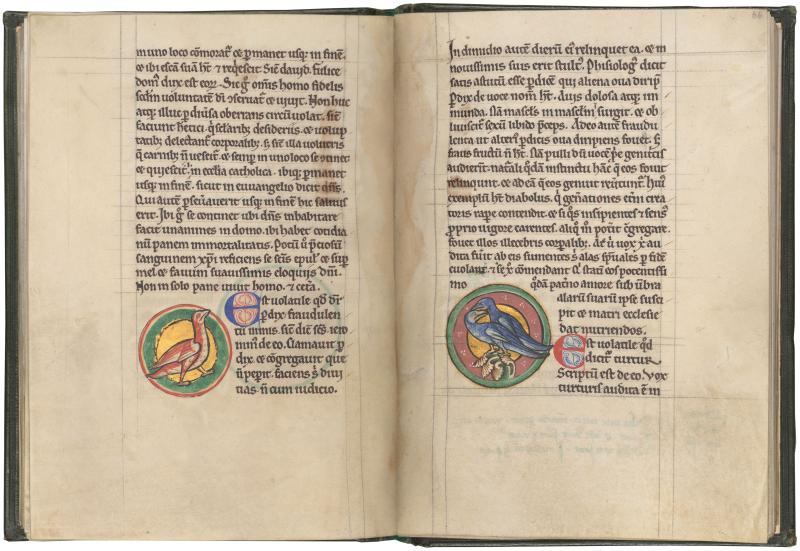 in uno loco cōmorat᷑ ⁊ ꝑmanet usq; in finē.
⁊ ibi escā suā ht̄ ⁊ reqescit. Sic̄ dauid. fulice
dom᷒ dux est eoꝝ. Sic g̊ omīs homo fidelis
sedm̄ voluntatē dī ꝯseruat᷑ ⁊ uiuit. Non huc
atq; illuc ꝑ diūsa oberrans circūuolat. sic̄
faciunt hetici. q̄ sclarib; desideriis ⁊ uolup
tatib; delectant᷑ corporalib; s; sic̄ illa volucris
q̄ carnib; n̄ uescit᷑. ⁊ semp̄ in uno loco se ꝯtinet
⁊ quiescit. in ecclīa catholica. ibiq; ꝑmanet
usq; in finē. sicut in euuangelio dicit dn̄s.
Qui autē ꝑseuauerit usq; in finē hic saluus
erit. Ibi g̊ se contineat ubi dn̄s inhabitare
facit unanimes in domo. ibi habet cotidia
nū panem immortalitatis. Potū ū p̄ciosū
sanguinem xp̄i reficiens se sc̄is epul᷒ ⁊ sup̄
mel ⁊ fauum suauissimis eloquiis dn̄i.
Non in solo pane uiuit homo. ⁊ cet̄a.
Est uolatile qd̄ dr̄
ꝑdyx. fraudulen
tū nimis. sic̄ dic̄ sc̄s iero
nim᷒ de eo. Clamauit ꝑ
dyx. ⁊ cōgregauit que
n̄ pepit. faciens s̄ diui
tias. n̄ cum iudicio.
66
In dimidio autē dierū eī relinquet ea. ⁊ in
nouissimis suis erit stult᷒. Phisiolog᷒ dicit
satis astutū esse ꝑdicē qui aliena oua dirip̄.
Ꝑdyx de uoce nom̄ ht̄. Auis dolosa atq; im
munda. Nā mascl᷒s in mascl̄m surgit. ⁊ ob
liuiscit᷑ sexū libido p̄ceps. Adeo autē fraudu
lenta ut alteri᷒ ꝑdicis oua diripiens foueat. s;
fraus fructū n̄ ht̄. Nā pulli dū uocē ꝓp̄e genitricis
audierint. natali q̊dā instinctu hāc q̄ eos fouit
relinqunt. ⁊ ad eā q̄ eos genuit reūtunt᷑. Hui᷒
exemplū ht̄ diabolus. q̄ gen̄ationes et̄ni crea
toris rape contendit. ⁊ si q̊s insipientes ⁊ sens᷒
ꝓprio uigore carentes. aliq̊ m̊ potīt ꝯgregare.
fouet illos illecebris corꝑalib;. At ū uox xp̄i au
dita fūit ab eis sumentes s̄ alas spūales ꝑ fidē
euolant. ⁊ se xp̄o cōmendant q̊ statī eos potentissi
mo q̊dā pat̄no amore sub ūbra
alarū suarū ipse susci
pit ⁊ matri ecclesie
dat nutriendos.
Est uolatile qd̄
dicit᷑ turtur.
Scriptū est de eo. Vox
turturis audita ē in